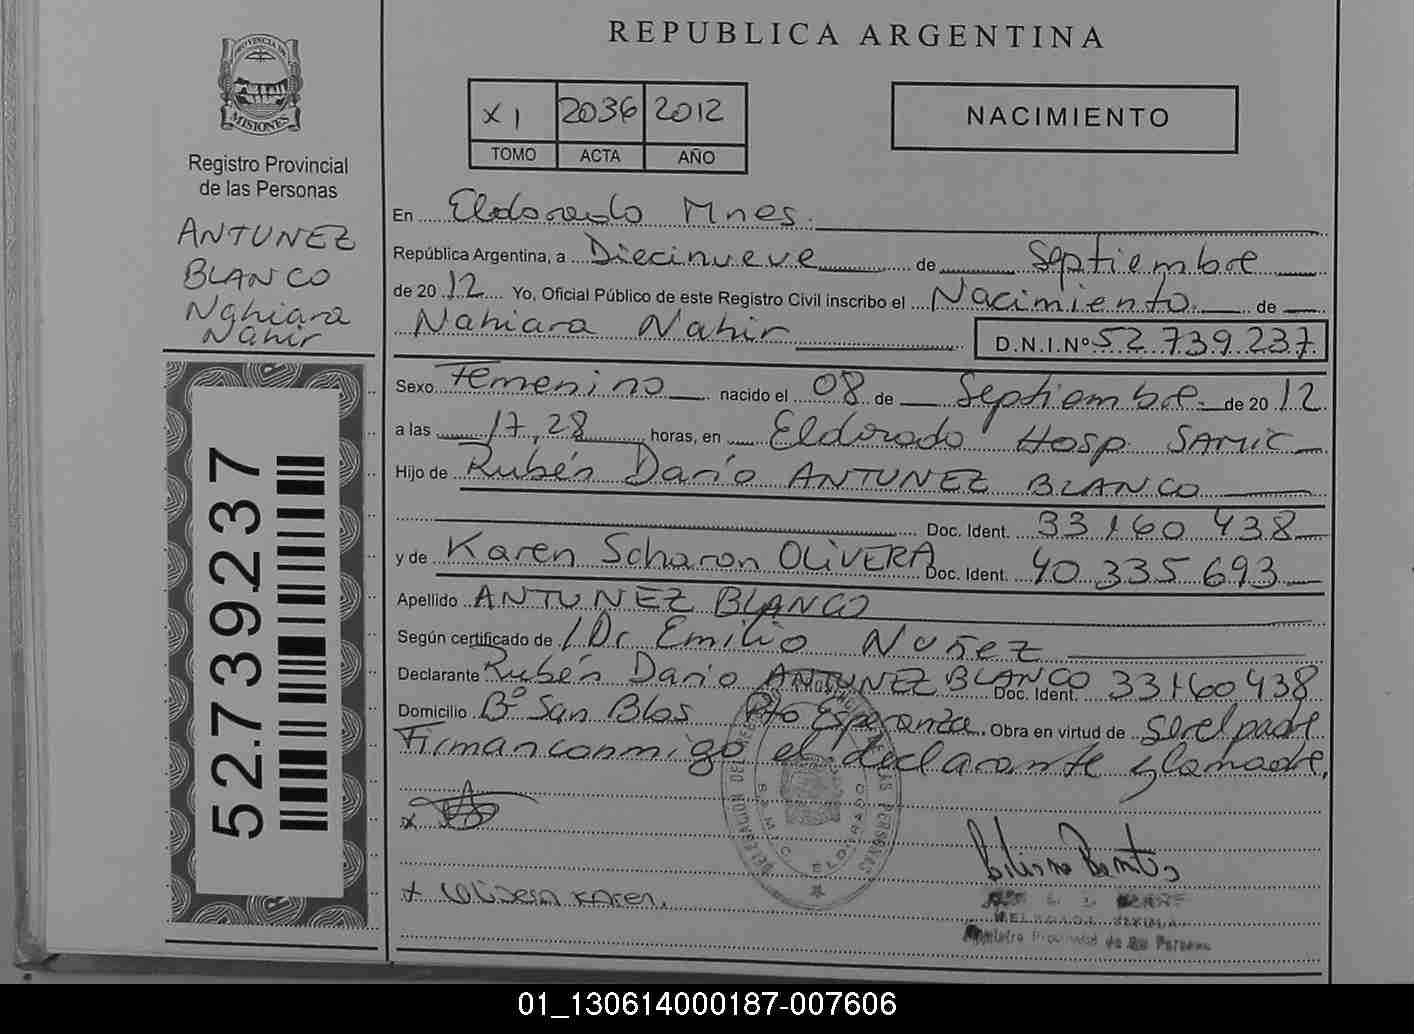 REPUBLICA ARGENTINA
PROVINCIA DE
MISIONES
Registro Provincial
de las Personas
ANTUNEZ
BLANCO
Nahiara
Nahir
52.739.237
XI 2036 2012
TOMO ACTA AÑO
NACIMIENTO
En Eldorado Mnes.
República Argentina, a Diecinueve de Septiembre
de 2012 Yo, Oficial Público de este Registro Civil inscribo el Nacimiento de
Nahiara Nahir D.N.I.Nº 52.739.237
Sexo Femenino nacido el 08 de Septiembre de 2012
a las 17,28 horas, en Eldorado Hosp. SAMIC
Hijo de Rubén Darío ANTUNEZ BLANCO
Doc. Ident. 33.160.438
y de Karen Scharon OLIVERA Doc. Ident. 40.335.693
Apellido ANTUNEZ BLANCO
Según certificado de Dr. Emilio Nuñez
Declarante Rubén Dario ANTUNEZ BLANCO Doc. Ident. 33.160.438
Domicilio Bº San Blas Pto Esperanza. Obra en virtud de ser el padre
Firman conmigo el declarante y la madre.
DELEGACION DEL REGISTRO PROVINCIAL DE LAS PERSONAS
S.A.M.I.C. ELDORADO
x
x Olivera Karen.
01_130614000187-007606